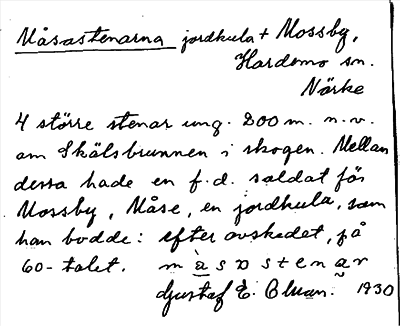 Måsastenarna jordkula + Mossby,
Hardemo sn.
Närke
4 större stenar ung. 200 m. n.v.
om Skälsbrunnen i skogen. Mellan
dessa hade en f.d. soldat för
Mossby, Måse, en jordkula, som
han bodde i efter avskedet, på
60-talet. m à s ɒ s t e n a̰ r
Gustaf E. 1930